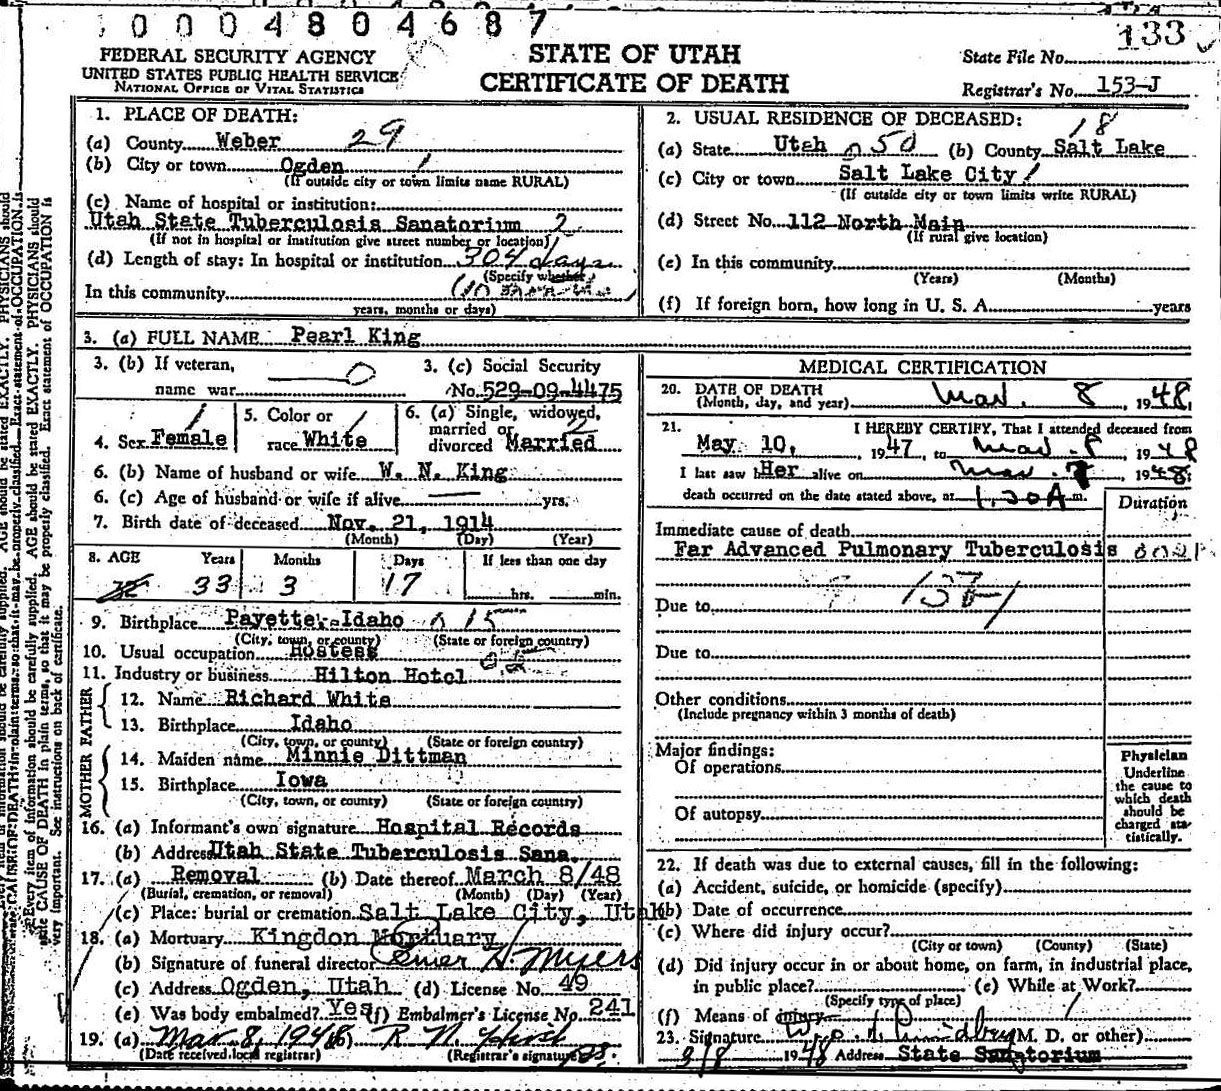 0 0 0 4 8 0 4 6 8 7
133
FEDERAL SECURITY AGENCY
UNITED STATES PUBLIC HEALTH SERVICE
NATIONAL OFFICE OF VITAL STATISTICS
STATE OF UTAH
CERTIFICATE OF DEATH
State File No.
Registrar's No. 153-J
1. PLACE OF DEATH:
(a) County Weber 29
(b) City or town Ogden 1
(If outside city or town limits name RURAL)
(c) Name of hospital or institution:
Utah State Tuberculosis Sanatorium 2
(If not in hospital or institution give street number or location)
(d) Length of stay: In hospital or institution 304 days
(Specify whether
In this community
years, months or days)
2. USUAL RESIDENCE OF DECEASED:
18
(a) State Utah 050 (b) County Salt Lake
(c) City or town Salt Lake City 1
(If outside city or town limits write RURAL)
(d) Street No. 112 North Main
(If rural give location)
(e) In this community
(Years) (Months)
(f) If foreign born, how long in U. S. A. years
3. (a) FULL NAME Pearl King
3. (b) If veteran,
name war
3. (c) Social Security
No. 529-09-4475
4. Sex Female
5. Color or
race White
6. (a) Single, widowed,
married or
divorced Married
6. (b) Name of husband or wife W. N. King
6. (c) Age of husband or wife if alive yrs.
7. Birth date of deceased Nov. 21, 1914
(Month) (Day) (Year)
8. AGE Years Months Days If less than one day
33 3 17 hrs. min.
9. Birthplace Payette, Idaho 0 15
(City, town, or county) (State or foreign country)
10. Usual occupation Hostess
11. Industry or business Hilton Hotel
FATHER
12. Name Richard White
13. Birthplace Idaho
(City, town, or county) (State or foreign country)
MOTHER
14. Maiden name Minnie Dittman
15. Birthplace Iowa
(City, town, or county) (State or foreign country)
16. (a) Informant's own signature Hospital Records
(b) Address Utah State Tuberculosis Sana.
17. (a) Removal (b) Date thereof March 8/48
(Burial, cremation, or removal) (Month) (Day) (Year)
(c) Place: burial or cremation Salt Lake City, Utah
18. (a) Mortuary Kingdon Mortuary
(b) Signature of funeral director Elmer H Myers
(c) Address Ogden, Utah (d) License No. 49
(e) Was body embalmed? Yes (f) Embalmer's License No. 241
19. (a) Mar 8, 1948 (b) R N Hirst
(Date received local registrar) (Registrar's signature)
MEDICAL CERTIFICATION
20. DATE OF DEATH
(Month, day, and year) Mar. 8, 1948
21. I HEREBY CERTIFY, That I attended deceased from
May 10, 1947 to Mar. 8 1948
I last saw her alive on Mar. 7 1948
death occurred on the date stated above, at 1.30A m.
Duration
Immediate cause of death
Far Advanced Pulmonary Tuberculosis 0021
Due to
Due to
Other conditions
(Include pregnancy within 3 months of death)
Major findings:
Of operations
Of autopsy
Physician
Underline
the cause to
which death
should be
charged sta-
tistically.
22. If death was due to external causes, fill in the following:
(a) Accident, suicide, or homicide (specify)
(b) Date of occurrence
(c) Where did injury occur?
(City or town) (County) (State)
(d) Did injury occur in or about home, on farm, in industrial place,
in public place? (e) While at Work?
(Specify type of place)
(f) Means of injury
23. Signature M. D. or other)
3/8 1948 Address State Sanatorium
Every item of information should be carefully supplied. AGE should be stated EXACTLY. PHYSICIANS should
state CAUSE OF DEATH in plain terms, so that it may be properly classified. Exact statement of OCCUPATION is
very important. See instructions on back of certificate.